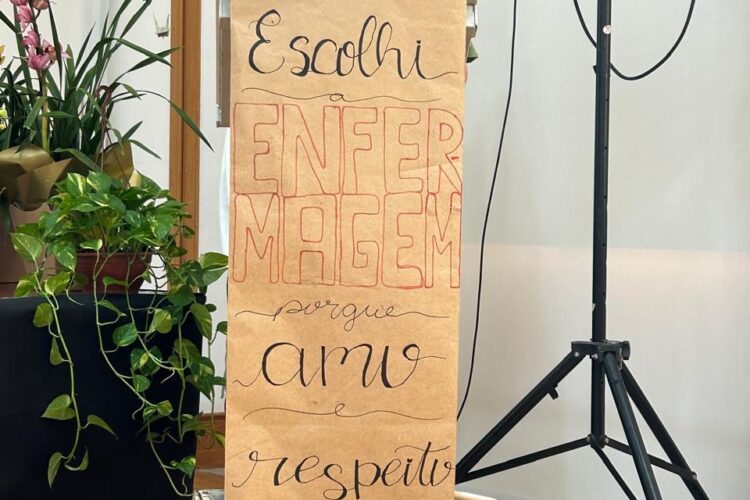 Escolhi
a
ENFER
MAGEM
porque
amo
e
respeito